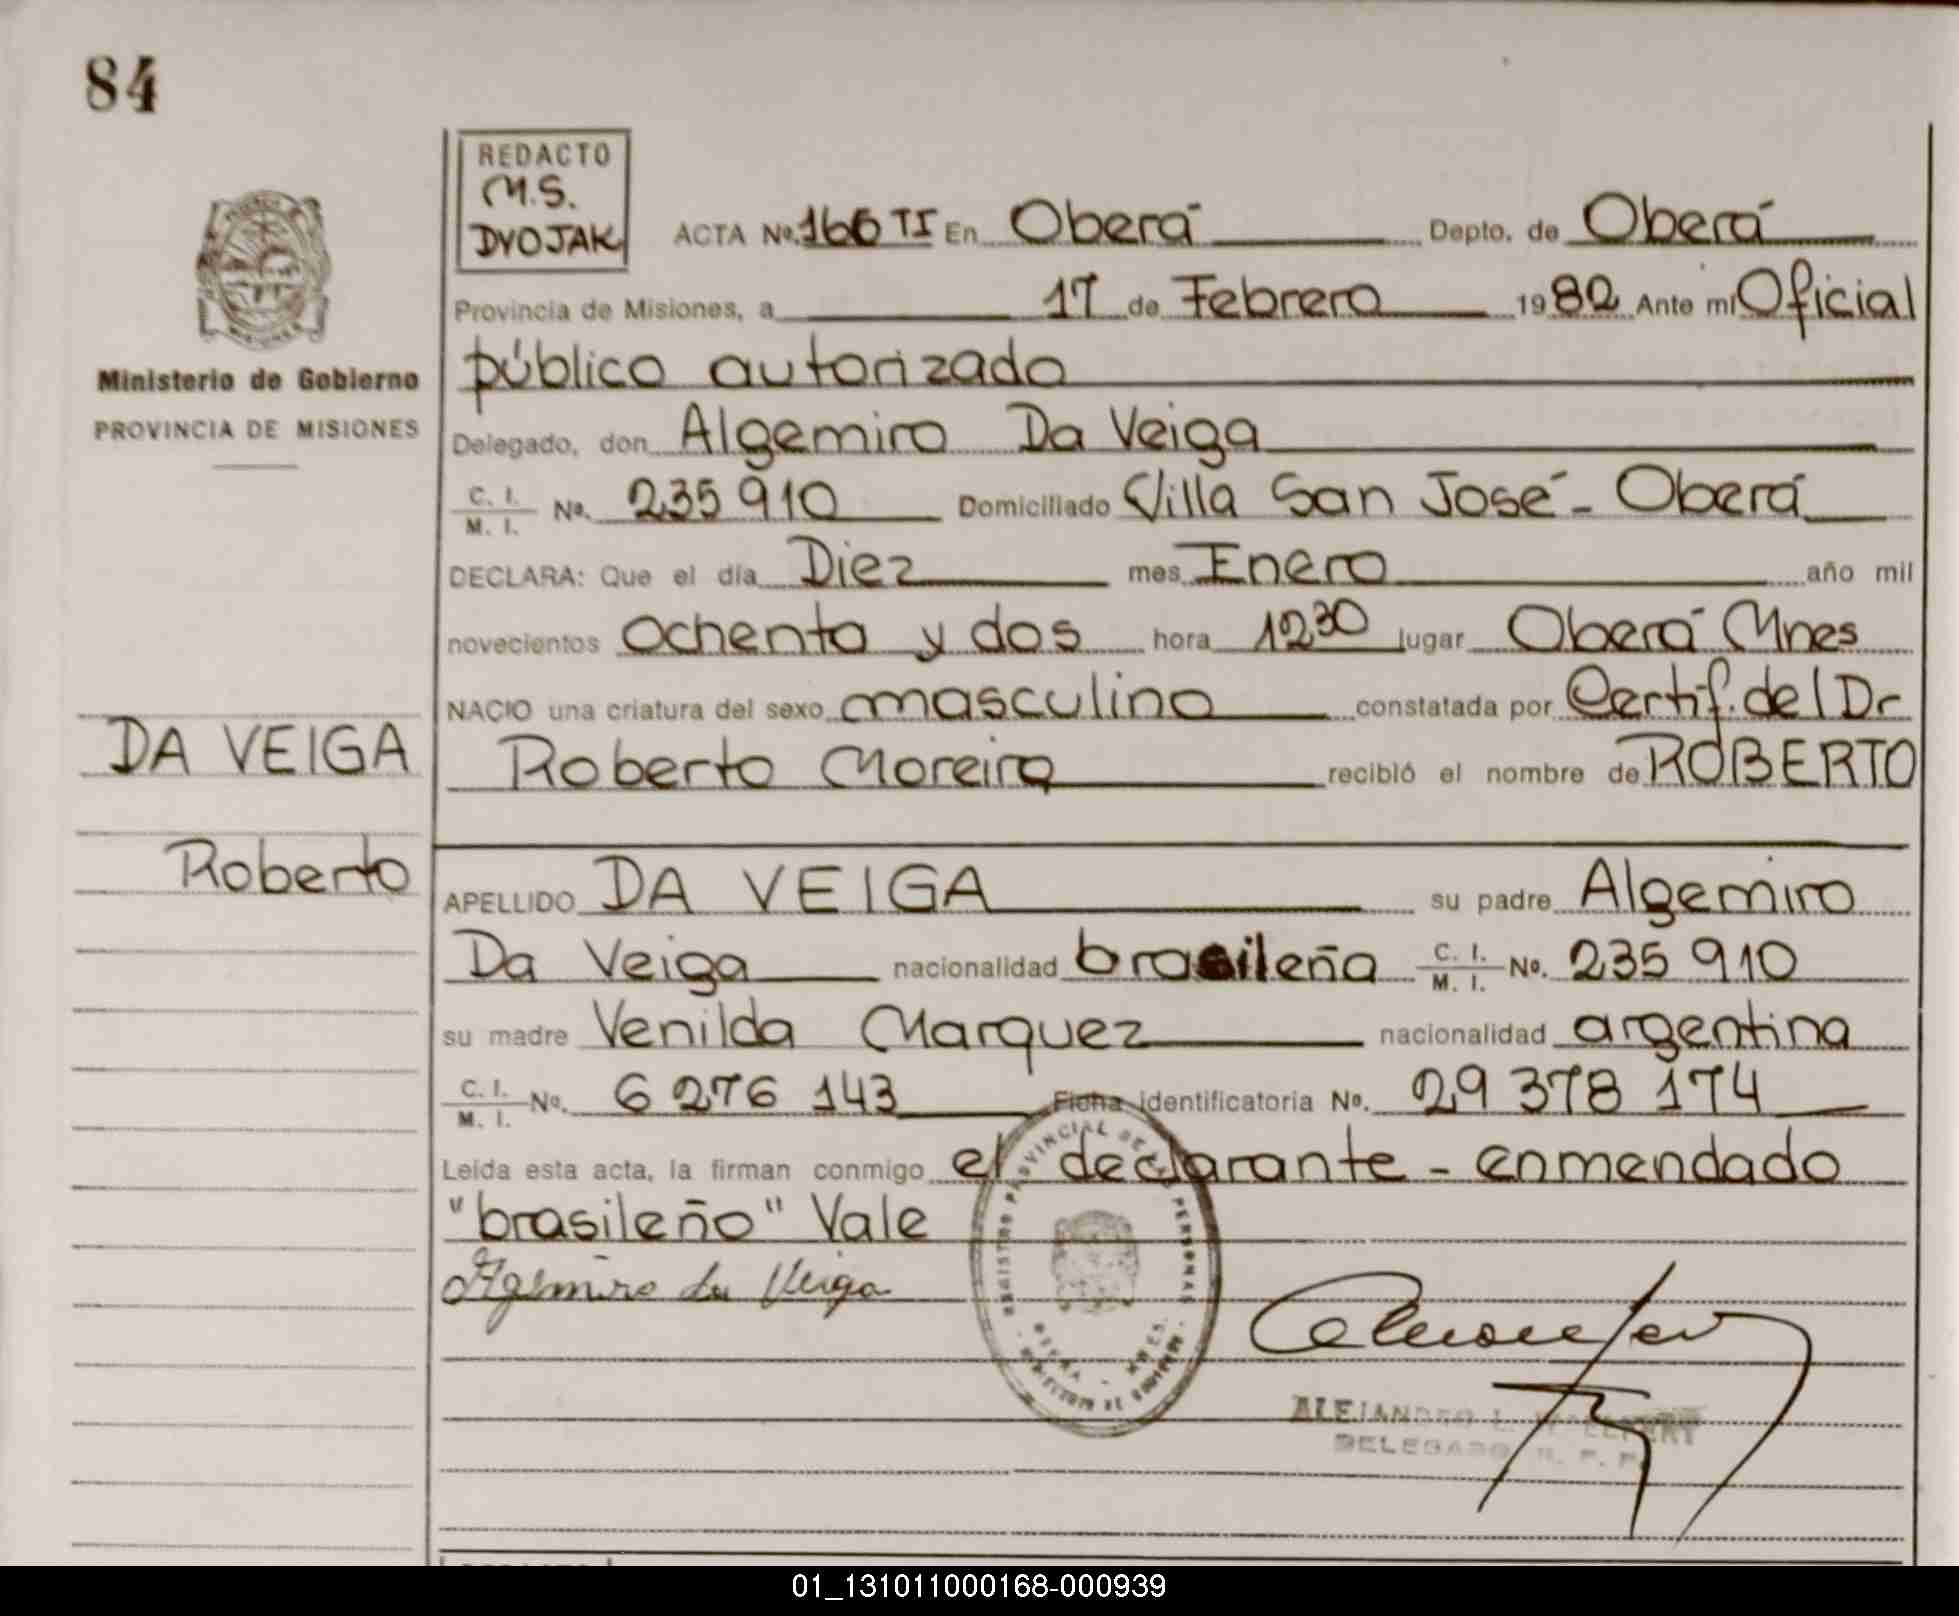 84
REDACTO
M.S.
DVOJAK
ACTA Nº. 166 TI En Oberá Depto. de Oberá
Provincia de Misiones, a 17 de Febrero 1982 Ante mí Oficial
público autorizado
Ministerio de Gobierno
PROVINCIA DE MISIONES
Delegado, don Algemiro Da Veiga
C. I.
M. I. Nº. 235 910 Domiciliado Villa San José - Oberá
DECLARA: Que el día Diez mes Enero año mil
novecientos ochenta y dos hora 12 30 lugar Oberá Mnes
NACIO una criatura del sexo masculino constatada por Certif. del Dr
Roberto Moreira recibió el nombre de ROBERTO
DA VEIGA
Roberto
APELLIDO DA VEIGA su padre Algemiro
Da Veiga nacionalidad brasileña C. I.
M. I. Nº. 235 910
su madre Venilda Marquez nacionalidad argentina
C. I.
M. I. Nº. 6 276 143 Ficha identificatoria Nº. 29 378 174
Leida esta acta, la firman conmigo el declarante - enmendado
"brasileño" Vale
Algemiro da Veiga
REGISTRO PROVINCIAL DE LAS PERSONAS
OBERA - MNES.
ALEJANDRO L.
DELEGADO R. P. P.
01_131011000168-000939